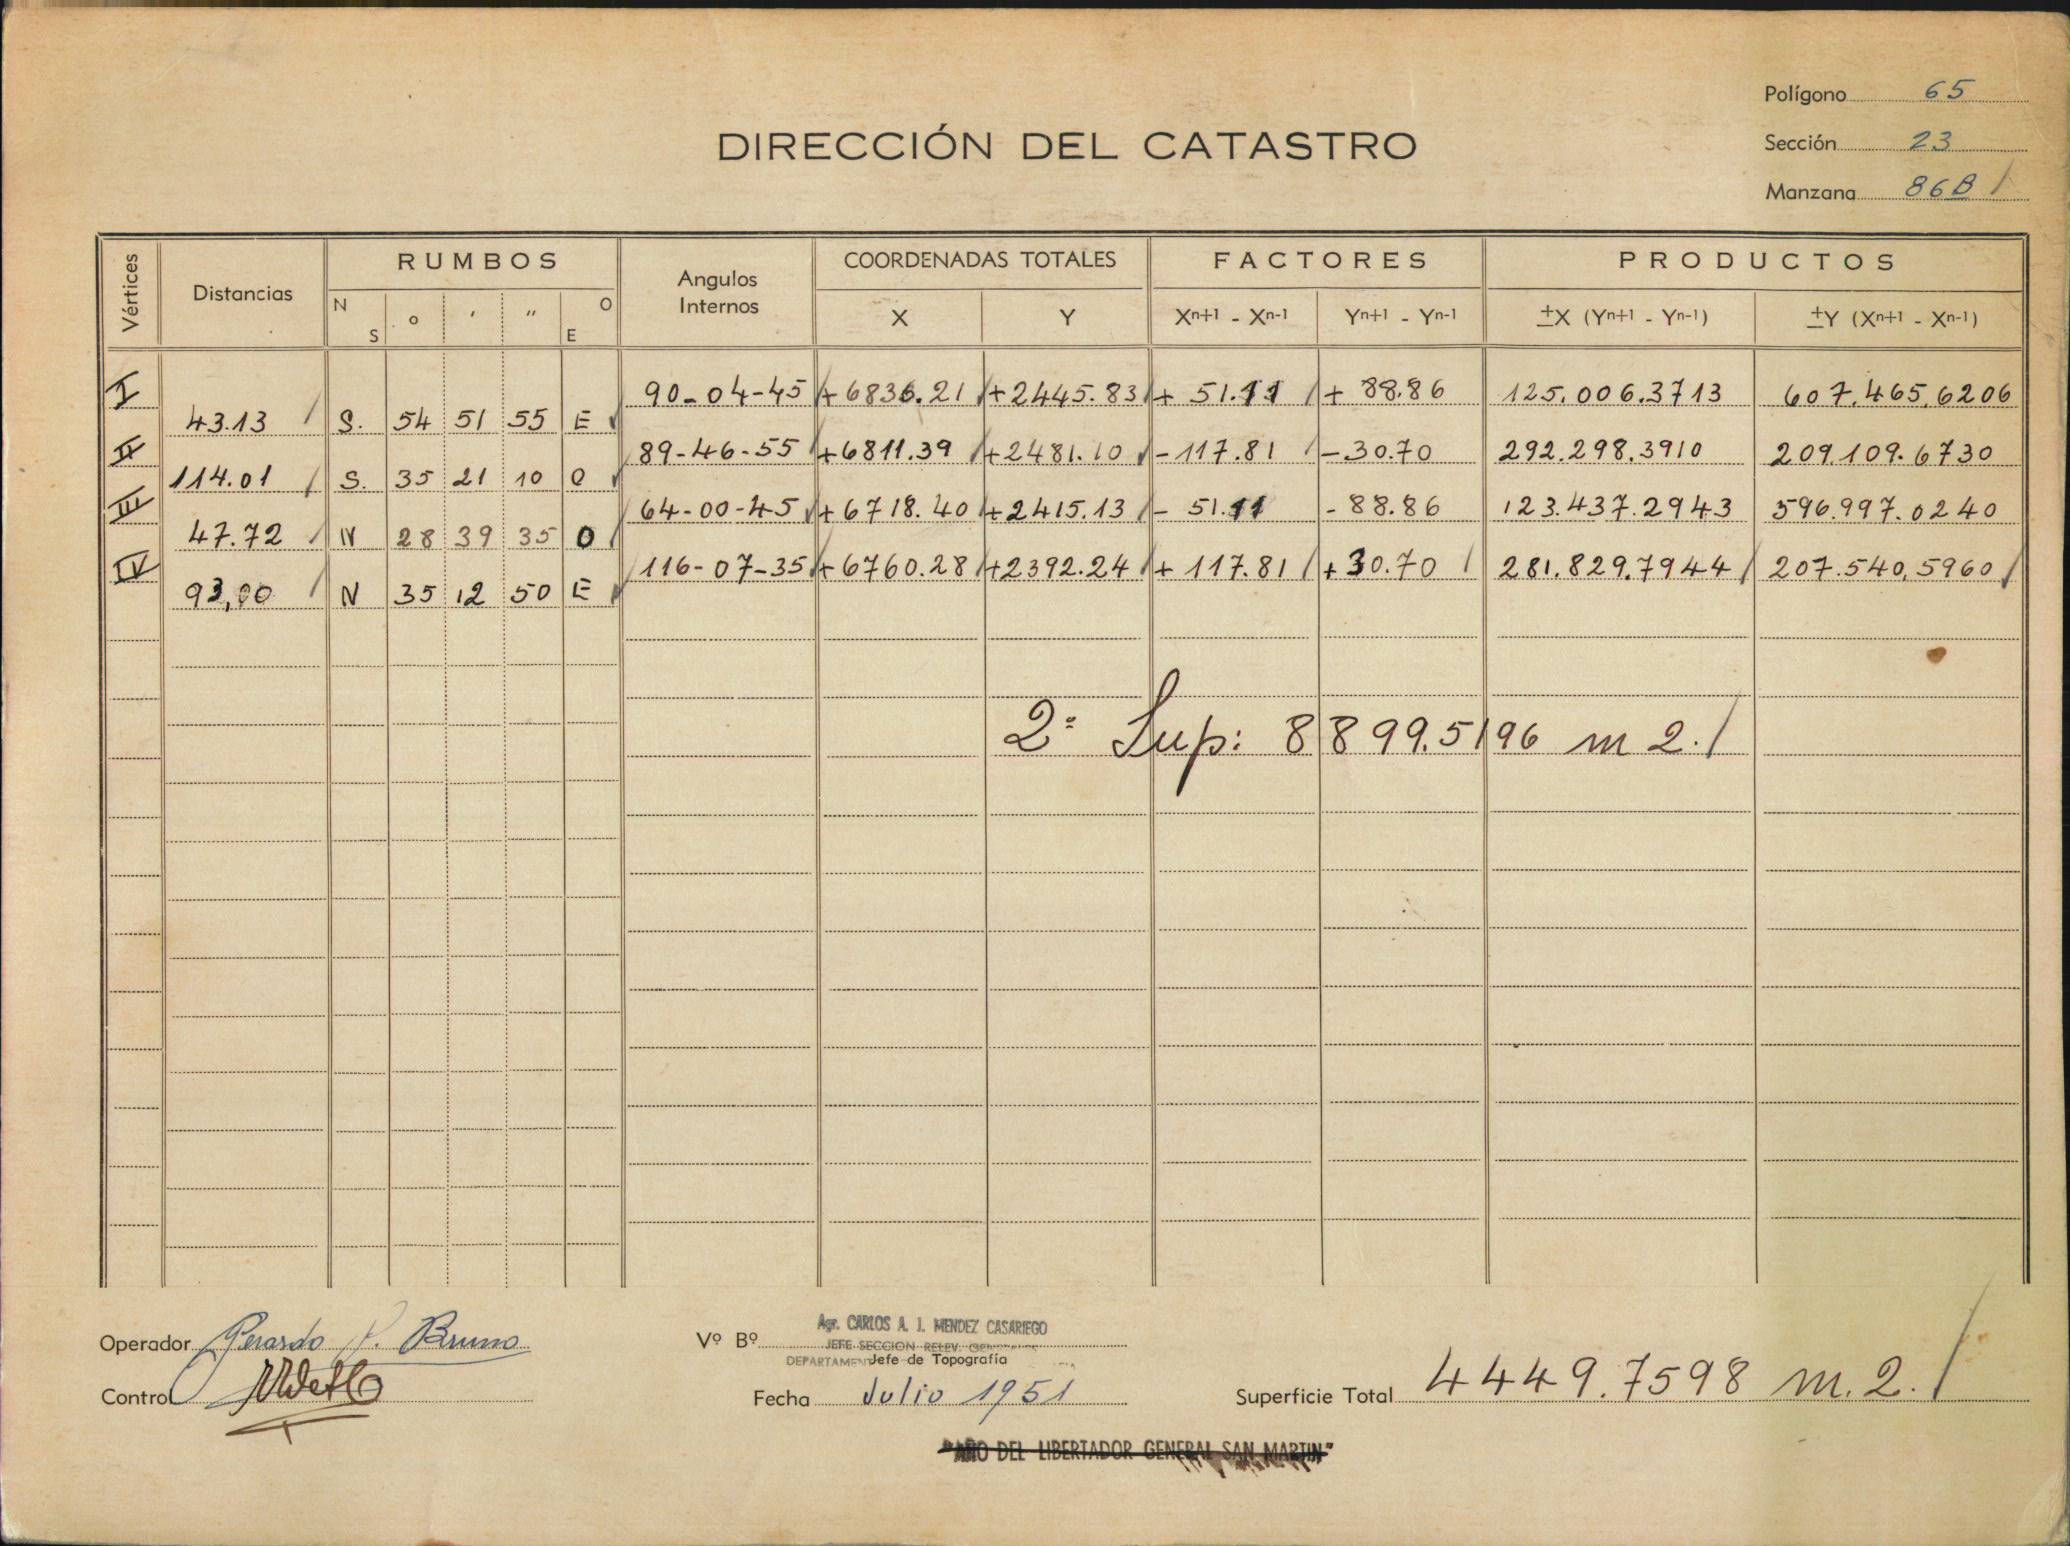 Polígono 65
Sección 23
Manzana 86B
DIRECCIÓN DEL CATASTRO
Vértices Distancias RUMBOS Angulos Internos COORDENADAS TOTALES FACTORES PRODUCTOS
N S o ' " O E X Y Xn+1 - Xn-1 Yn+1 - Yn-1 ±X (Yn+1 - Yn-1) ±Y (Xn+1 - Xn-1)
I 90-04-45 +6836.21 +2445.83 + 51.11 + 88.86 125.006.3713 607.465,6206
43.13 S. 54 51 55 E
II 89-46-55 +6811.39 +2481.10 -117.81 -30.70 292.298.3910 209.109.6730
114.01 S. 35 21 10 O
III 64-00-45 +6718.40 +2415.13 - 51.11 - 88.86 123.437.2943 596.997.0240
47.72 N 28 39 35 O
IV 116-07-35 +6760.28 +2392.24 + 117.81 +30.70 281.829.7944 207.540,5960
93,00 N 35 12 50 E
2º Sup: 8899.5196 m 2.
Operador Gerardo P. Bruno
Vº Bº Agr. CARLOS A. J. MENDEZ CASARIEGO
JEFE SECCION RELEV.
DEPARTAMEN Jefe de Topografía
Control
Fecha Julio 1951
Superficie Total 4449.7598 m. 2.
"AÑO DEL LIBERTADOR GENERAL SAN MARTIN"